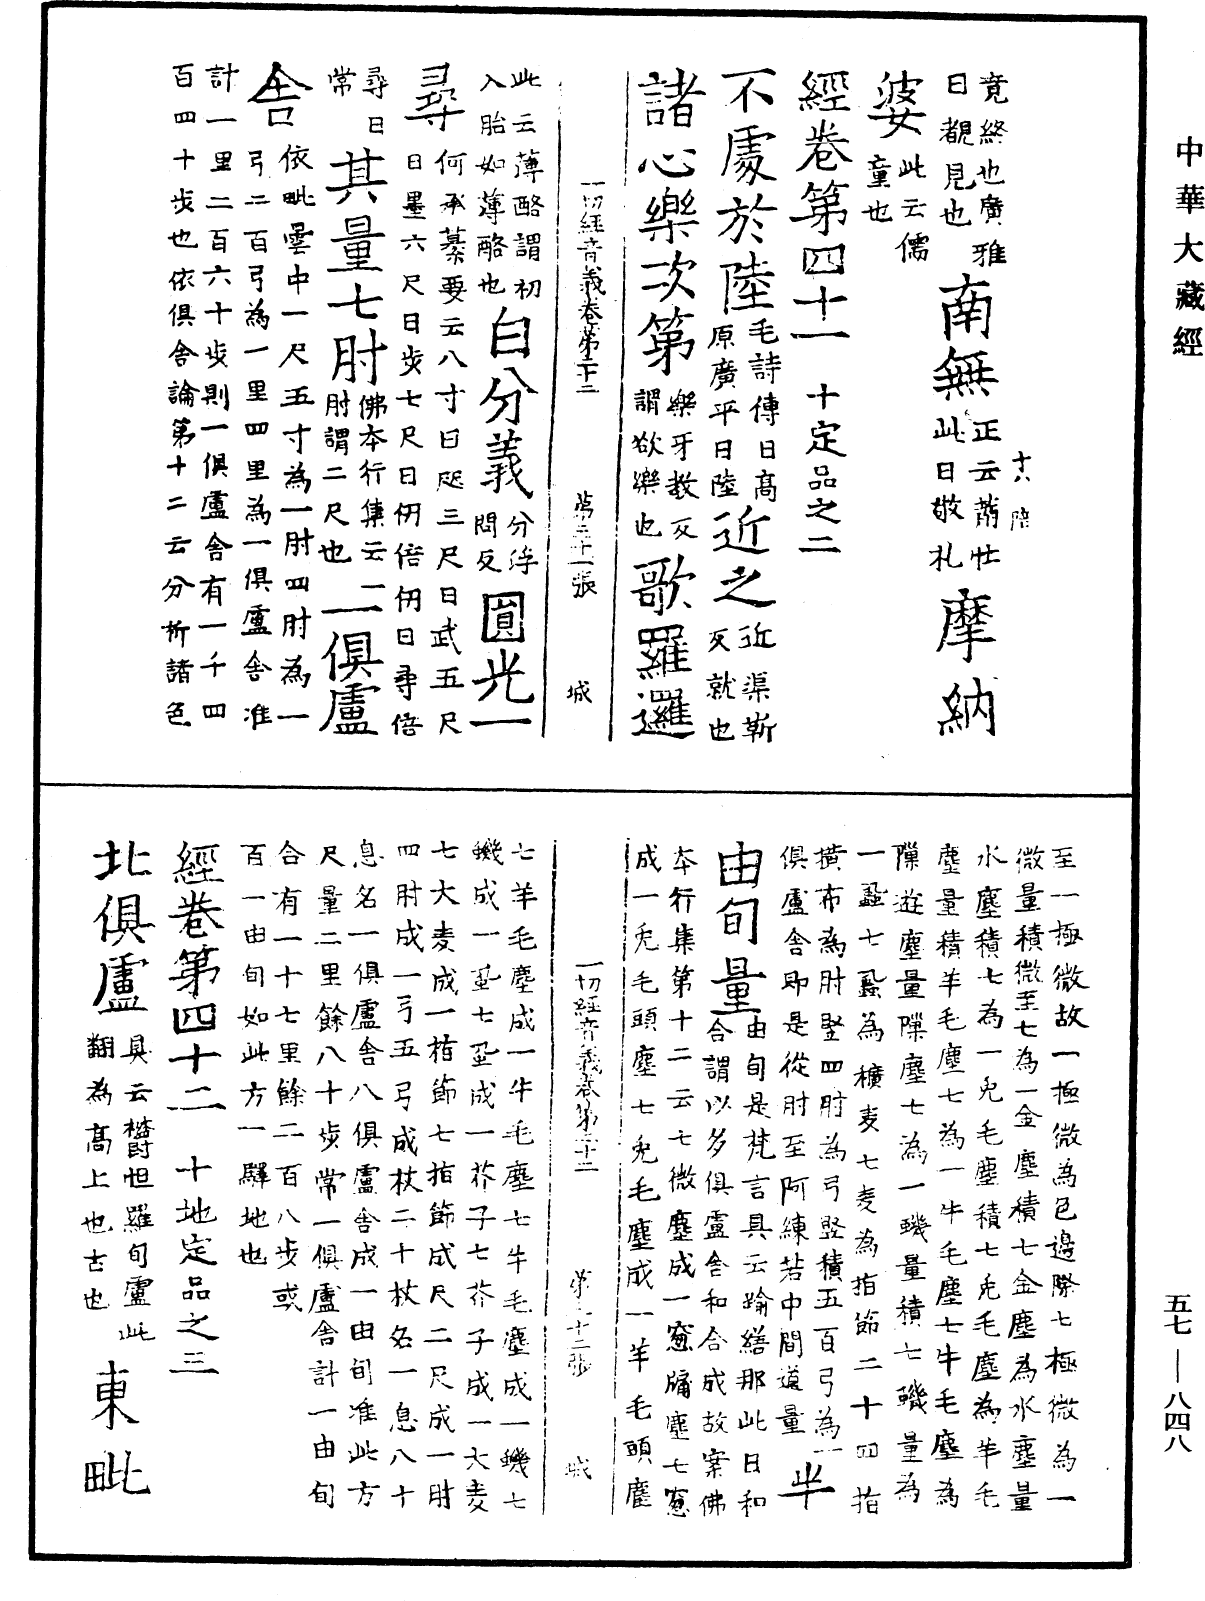 中華大藏經
竟終也廣雅
曰覩見也
南無
正云蕭壮
此曰敬礼
摩納
十六
婆
此云儒
童也
經卷第四十一 十定品之二
不處於陸
毛詩傳曰髙
原廣平曰陸
近之
近渠靳
反就也
諸心樂次第
樂牙教反
謂欲樂也
歌羅邏
一切經音義卷第二十二 第二十一張 城
此云薄酪謂初
入胎如薄酪也
白分義
分浮
問反
圓光一
尋
何承纂要云八寸曰咫三尺曰武五尺
曰墨六尺曰步七尺曰仞倍仞曰尋倍
尋曰
常
其量七肘
佛夲行集云二
肘謂二尺也
一俱盧
舍
依毗曇中一尺五寸為一肘四肘為一
弓二百弓為一里四里為一俱盧舍准
計一里二百六十步則一俱盧舍有一千四
百四十步也依俱舍論第十二云分析諸色
至一極微故一極微為色邊際七極微為一
微量積微至七為一金塵積七金塵為水塵量
水塵積七為一兎毛塵積七兎毛塵為羊毛
塵量積羊毛塵七為一牛毛塵七牛毛塵為
隟遊塵量隟塵七為一蟣量積七蟣量為
一蝨七蝨為穬麦七麦為指節二十四指
横布為肘竪四肘為弓竪積五百弓為一
俱盧舍即是從肘至阿練若中間道量
半
由旬量
由旬是梵言具云踰繕那此曰和
合謂以多俱盧舍和合成故案佛
夲行集第十二云七微塵成一窓牖塵七窓
成一兎毛頭塵七兎毛塵成一羊毛頭塵
一切經音義卷第二十二 第二十二張 城
七羊毛塵成一牛毛塵七牛毛塵成一蟣七
蟣成一虱七虱成一芥子七芥子成一大麦
七大麦成一指節七指節成尺二尺成一肘
四肘成一弓五弓成杖二十杖名一息八十
息名一俱盧舍八俱盧舍成一由旬准此方
尺量二里餘八十步常一俱盧舍計一由旬
合有一十七里餘二百八步或
百一由旬如此方一驛地也
經卷第四十二 十地定品之三
北俱盧
具云欝怛羅旬盧此
翻為髙上也古也
東毗
五七—八四八